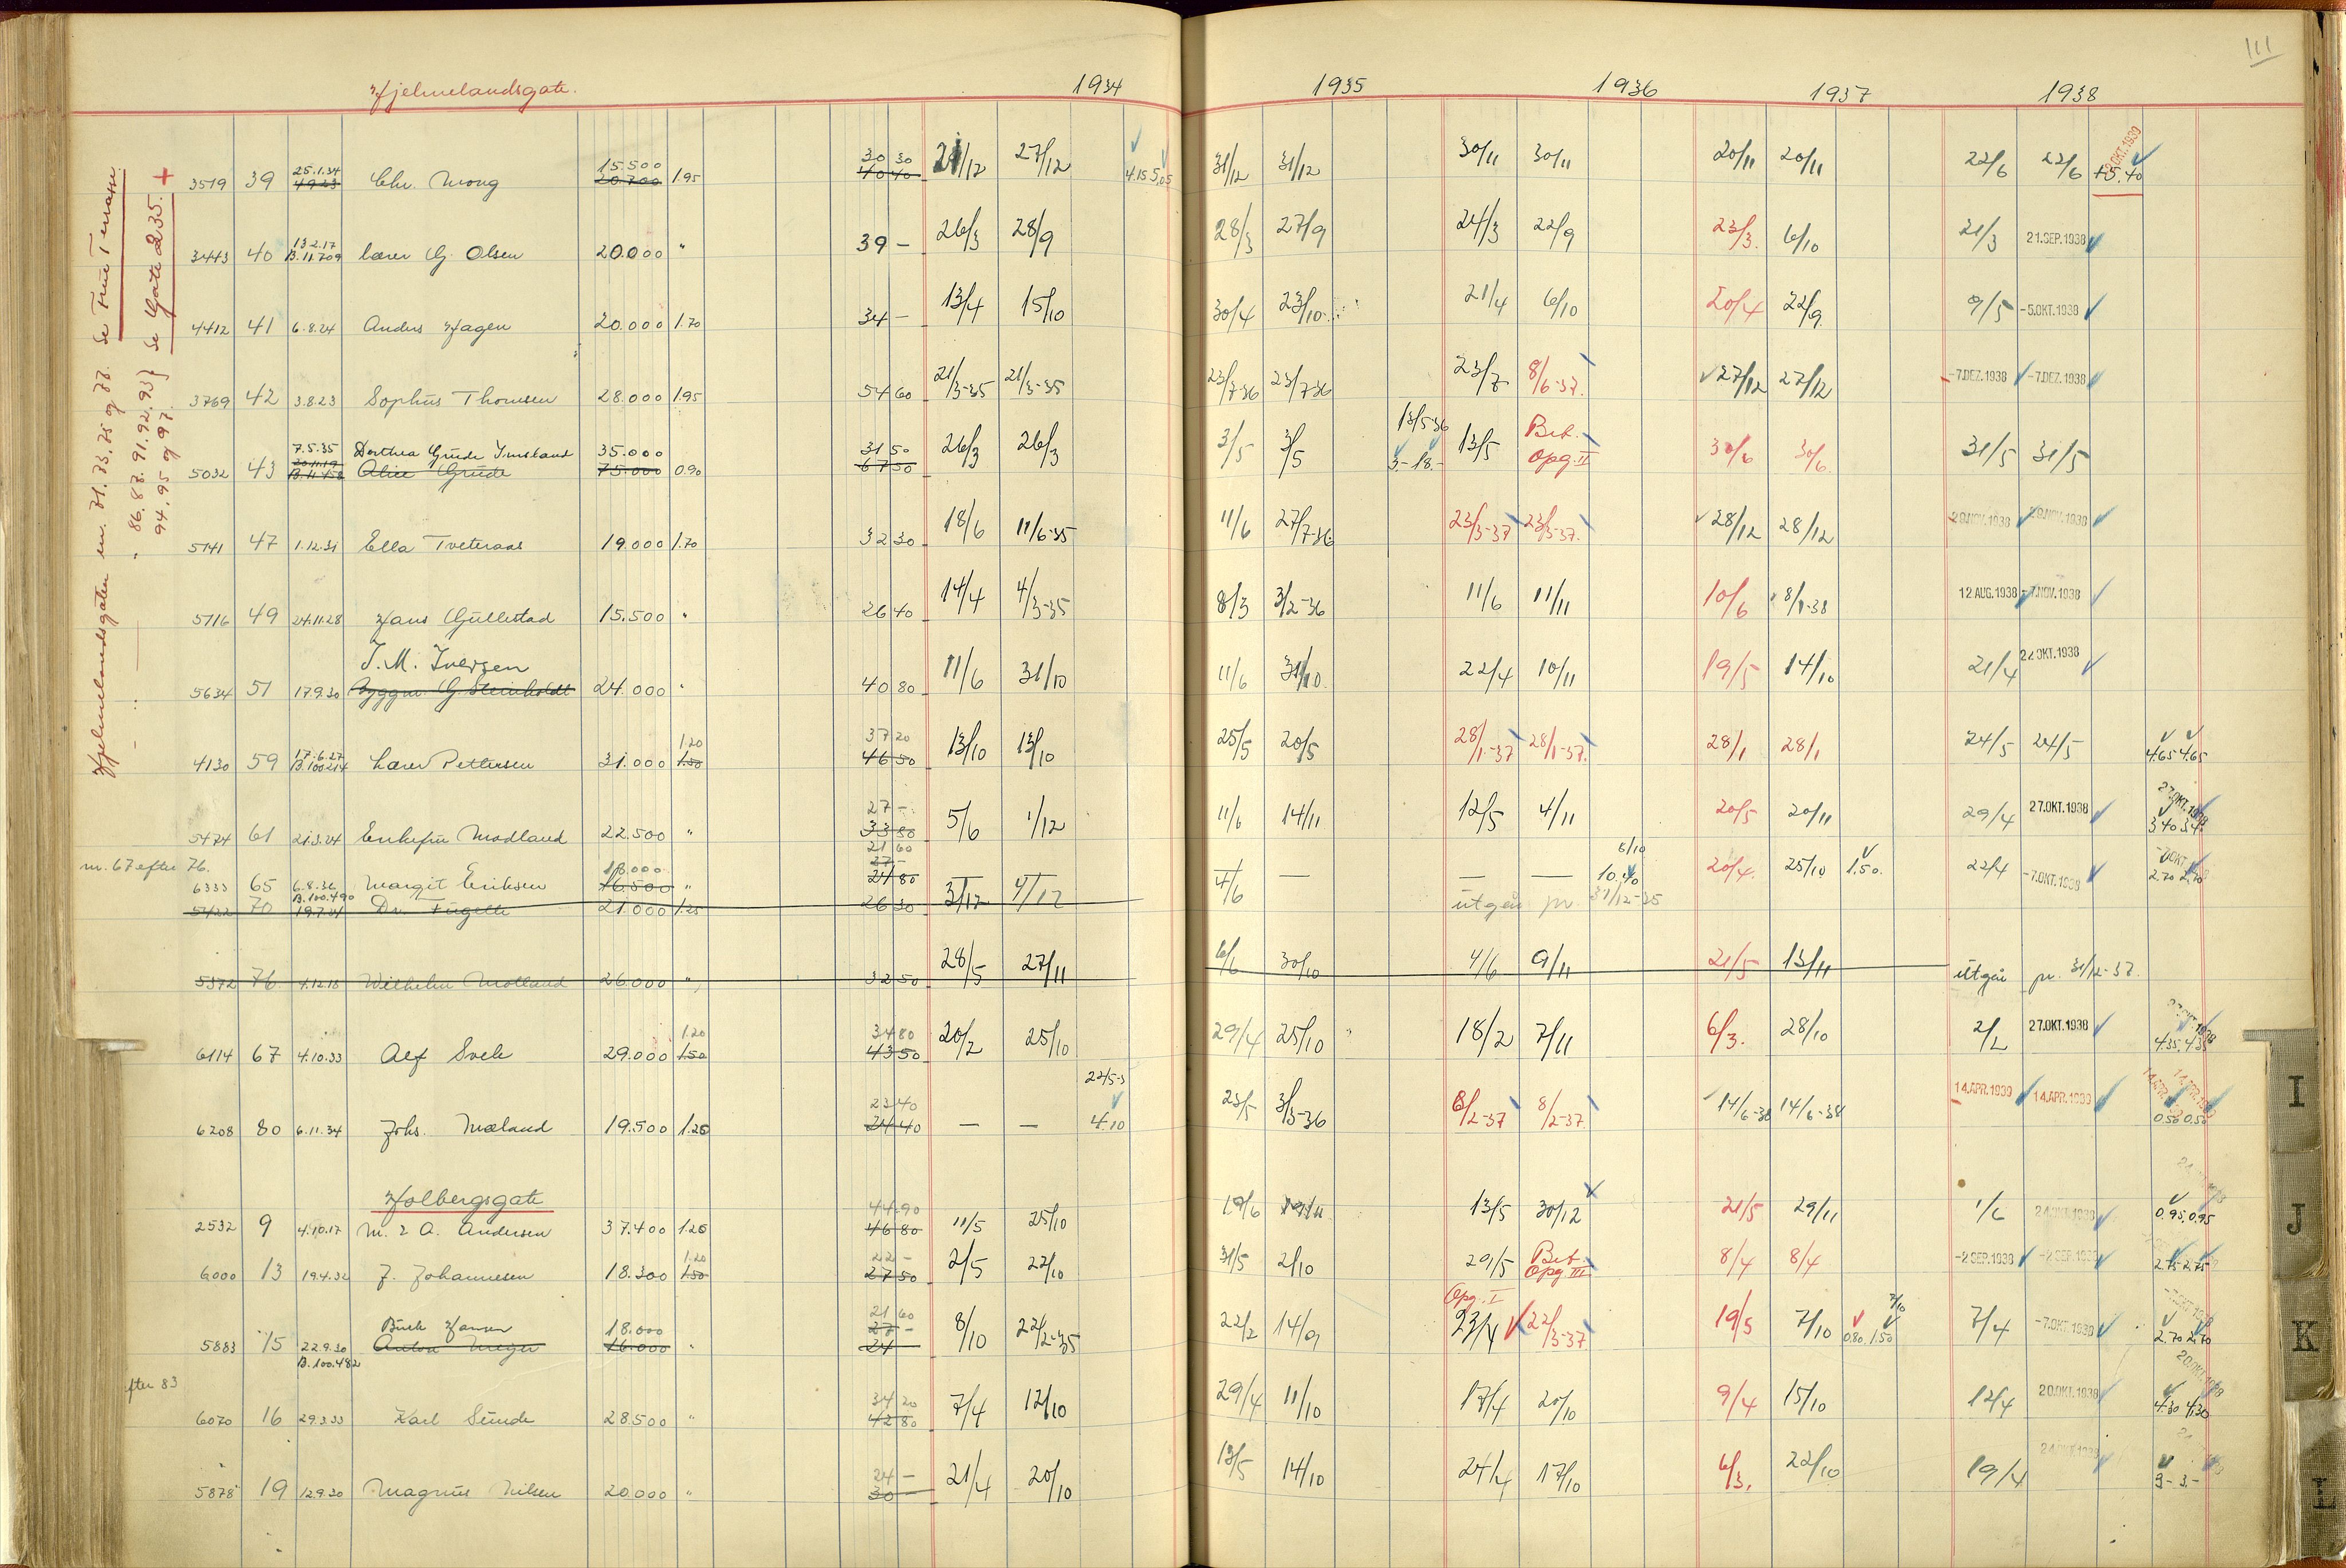 111
Hjelmelandsgate. 1934 1935 1936 1937 1938
Hjelmelandsgaten nr. 71.73.75 og 77. Se Frue Terrasse
" 86.87.91.92.93 } Se Gate 235. +
94.95 og 97.
3519 39 25.1.34 Chr. Mong 15.500 20.700 1.95 30 30 40 40 21/12 27/12 4.15 5.05 31/12 31/12 30/11 30/11 20/11 20/11 22/6 22/6 +5.40
3443 40 13.2.17 B.11.709 Lærer G. Olsen 20.000 " 39 – 26/3 28/9 28/3 27/9 24/3 22/9 23/3. 6/10 21/3 21.SEP.1938
4412 41 6.8.24 Anders Hagen 20.000 1.70 34 – 13/4 15/10 30/4 23/10 21/4 6/10 20/4 22/9 9/5 -5.OKT.1938
3769 42 3.8.23 Sophus Thomsen 28.000 1.95 54 60 21/3-35 21/3-35 23/7-36 23/7-36 23/7 8/6-37. 27/12 27/12 -7.DEZ.1938 -7.DEZ.1938
5032 43 7.5.35 20.11.19 B.11.458 Dorthea Grude Imsland 35.000
Alice Grude 75.000 0.90 31 50 67 50 26/3 26/3 3/5 3/5 13/5-36 3.- 18.- 13/5 Bet. Opg. II 30/6 30/6 31/5 31/5
5141 47 1.12.31 Ella Tveteraas 19.000 1.70 32 30 18/6 11/6-35 11/6 27/7-36 23/3-37 23/3-37. 28/12 28/12 29.NOV.1938 29.NOV.1938
5716 49 24.11.28 Hans Gullestad 15.500 " 26 40 14/4 4/3-35 8/3 3/2-36 11/6 11/11 10/6 8/1-38 12.AUG.1938 -7.NOV.1938
J. M. Iversen
5634 51 17.9.30 Byggm. G. Steinholdt 24.000 " 40 80 11/6 31/10 11/6 31/10 22/4 10/11 19/5 14/10 21/4 22.OKT.1938
4130 59 17.6.27 B.100.214 Lærer Pettersen 31.000 1.20 1.50 37 20 46 50 13/10 13/10 25/5 20/5 28/1-37 28/1-37. 28/1 28/1 24/5 24/5 4.65 4.65
5474 61 21.3.24 Enkefru Modland 22.500 " 27 – 33 80 5/6 1/12 11/6 14/11 12/5 4/11 20/5 20/11 29/4 27.OKT.1938 27.OKT.1938 3.40 3.4
nr. 67 efter 76.
6333 65 6.8.36 B.100.490 Margit Eriksen 18.000 16.500 " 21 60 27 – 24 80 — — — — 5/10 10.40 20/4. 25/10 1.50. 22/4 -7.OKT.1938 2.70 2.70
5422 70 19.7.21 21.000 1.25 26 30 3/12 4/12 4/6 utgår pr. 31/12-35
5372 76. 4.12.18 Wilhelm Molland 26.000 " 32 50 28/5 27/11 6/6 30/10 4/6 9/11 21/5 13/11 utgår pr. 31/12-37.
6114 67 4.10.33 Alf Sveh 29.000 1.20 1.50 34 80 43 50 20/2 25/10 29/4 25/10 18/2 7/11 6/3. 28/10 2/2 27.OKT.1938 4.35. 4.35
6208 80 6.11.34 Johs. Mæland 19.500 1.20 23 40 24 40 — — 22/5-3 4.10 23/5 3/3-36 8/2-37 8/2-37. 14/6-38 14/6-38 14.APR.1939 14.APR.1939 14.APR.1939 14.APR.1939 0.50 0.50
Holbergsgate
2532 9 4.10.17 M. & A. Andersen 37.400 1.20 44.90 46 80 11/5 25/10 19/6 13/5 30/12 21/5 29/11 1/6 24.OKT.1938 0.95. 0.95
6000 13 19.4.32 J. Johannesen 18.300 1.20 1.50 22 – 27 50 2/5 22/10 31/5 2/10 29/5 Bet. Opg. III 8/4 8/4 -2.SEP.1938 -2.SEP.1938 2.75 2.75
Buck Hansen 18.000
5883 15 22.9.30 B.100.482 Anton Meyer 16.000 " 21 60 27 – 24 – 8/10 22/2-35 22/2 14/9 Opg. I 23/4 22/3-37 19/5 7/10 0.80 7/10 1.50 7/4 -7.OKT.1938 2.70 2.70
efter 83
6070 16 29.3.33 Karl Sunde 28.500 " 34 20 42 80 7/4 12/10 29/4 11/10 17/4 20/10 9/4 15/10 12/4 20.OKT.1938 4.30 4.30
5878 19 12.9.30 Magnus Nilsen 20.000 " 24 – 30 – 21/4 20/10 13/5 14/10 24/4 17/10 6/3. 22/10 19/4 24.OKT.1938 3.- 3.-
I
J
K
L